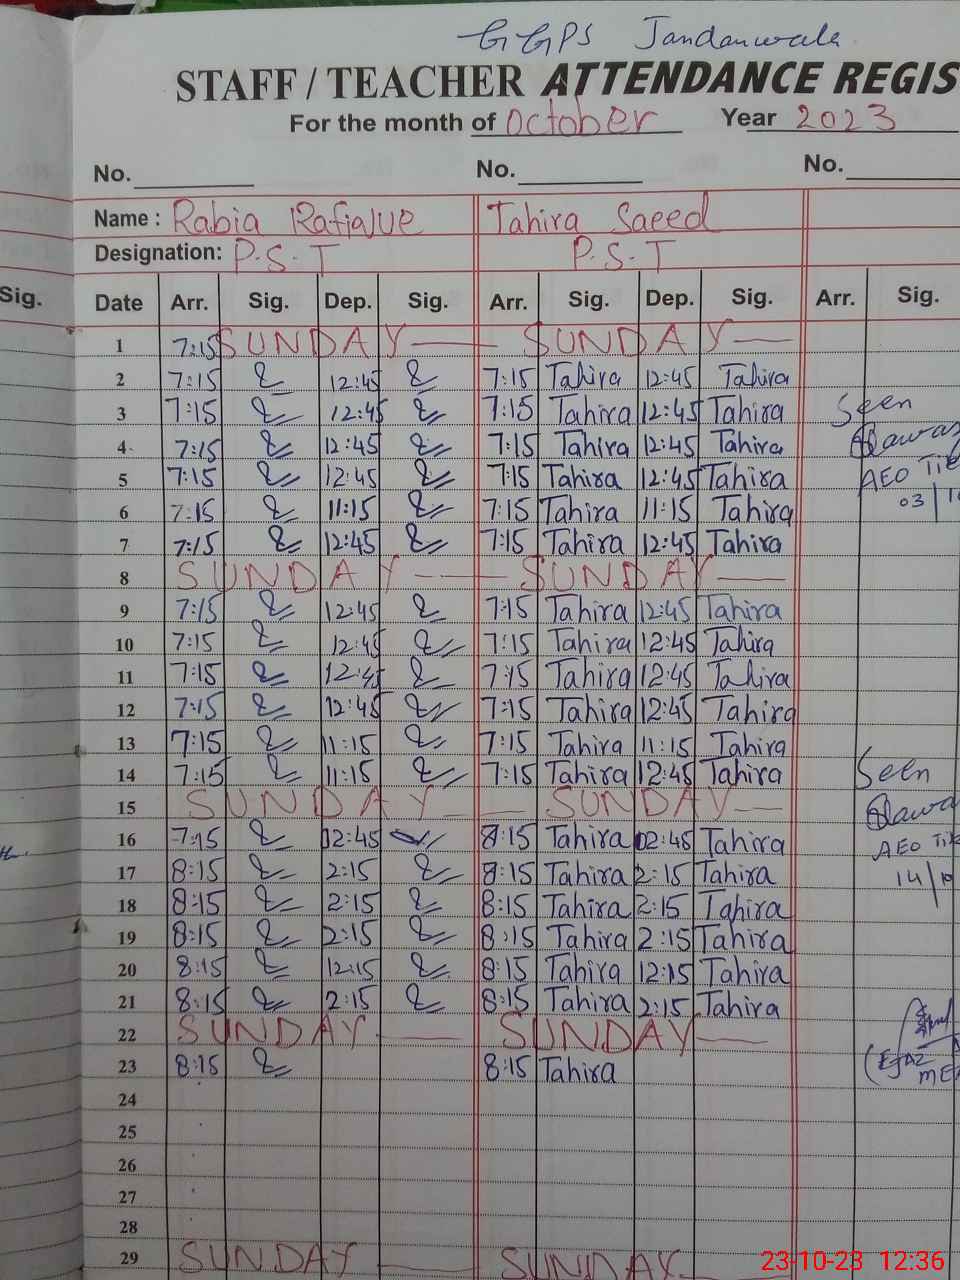 GGPS Jandanwala
STAFF / TEACHER ATTENDANCE REGIS
For the month of October Year 2023
No. No. No.
Name : Rabia Rafique Tahira Saeed
Designation: P.S.T P.S.T
Sig. Date Arr. Sig. Dep. Sig. Arr. Sig. Dep. Sig. Arr. Sig.
1 7:15 SUNDAY SUNDAY
2 7:15 12:45 7:15 Tahira 12:45 Tahira
3 7:15 12:45 7:15 Tahira 12:45 Tahira Seen
4 7:15 12:45 7:15 Tahira 12:45 Tahira
5 7:15 12:45 7:15 Tahira 12:45 Tahira AEO
6 7:15 11:15 7:15 Tahira 11:15 Tahira 03/
7 7:15 12:45 7:15 Tahira 12:45 Tahira
8 SUNDAY SUNDAY
9 7:15 12:45 7:15 Tahira 12:45 Tahira
10 7:15 12:45 7:15 Tahira 12:45 Tahira
11 7:15 12:45 7:15 Tahira 12:45 Tahira
12 7:15 12:45 7:15 Tahira 12:45 Tahira
13 7:15 11:15 7:15 Tahira 11:15 Tahira
14 7:15 11:15 7:15 Tahira 12:45 Tahira Seen
15 SUNDAY SUNDAY
16 7:15 02:45 8:15 Tahira 02:45 Tahira AEO
17 8:15 2:15 8:15 Tahira 2:15 Tahira 14/10
18 8:15 2:15 8:15 Tahira 2:15 Tahira
19 8:15 2:15 8:15 Tahira 2:15 Tahira
20 8:15 12:15 8:15 Tahira 12:15 Tahira
21 8:15 2:15 8:15 Tahira 2:15 Tahira
22 SUNDAY SUNDAY
23 8:15 8:15 Tahira
24
25
26
27
28
29 SUNDAY SUNDAY
23-10-23 12:36